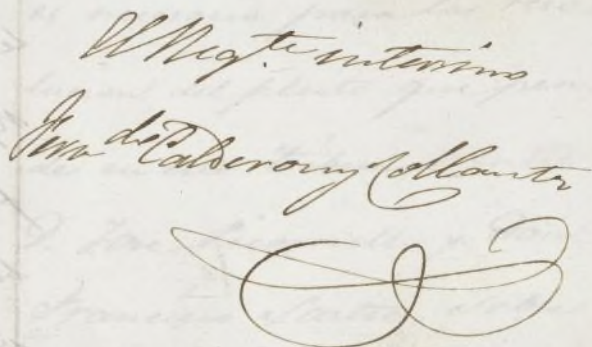 El Reg.te interino
Fern.do Calderon y Collantes